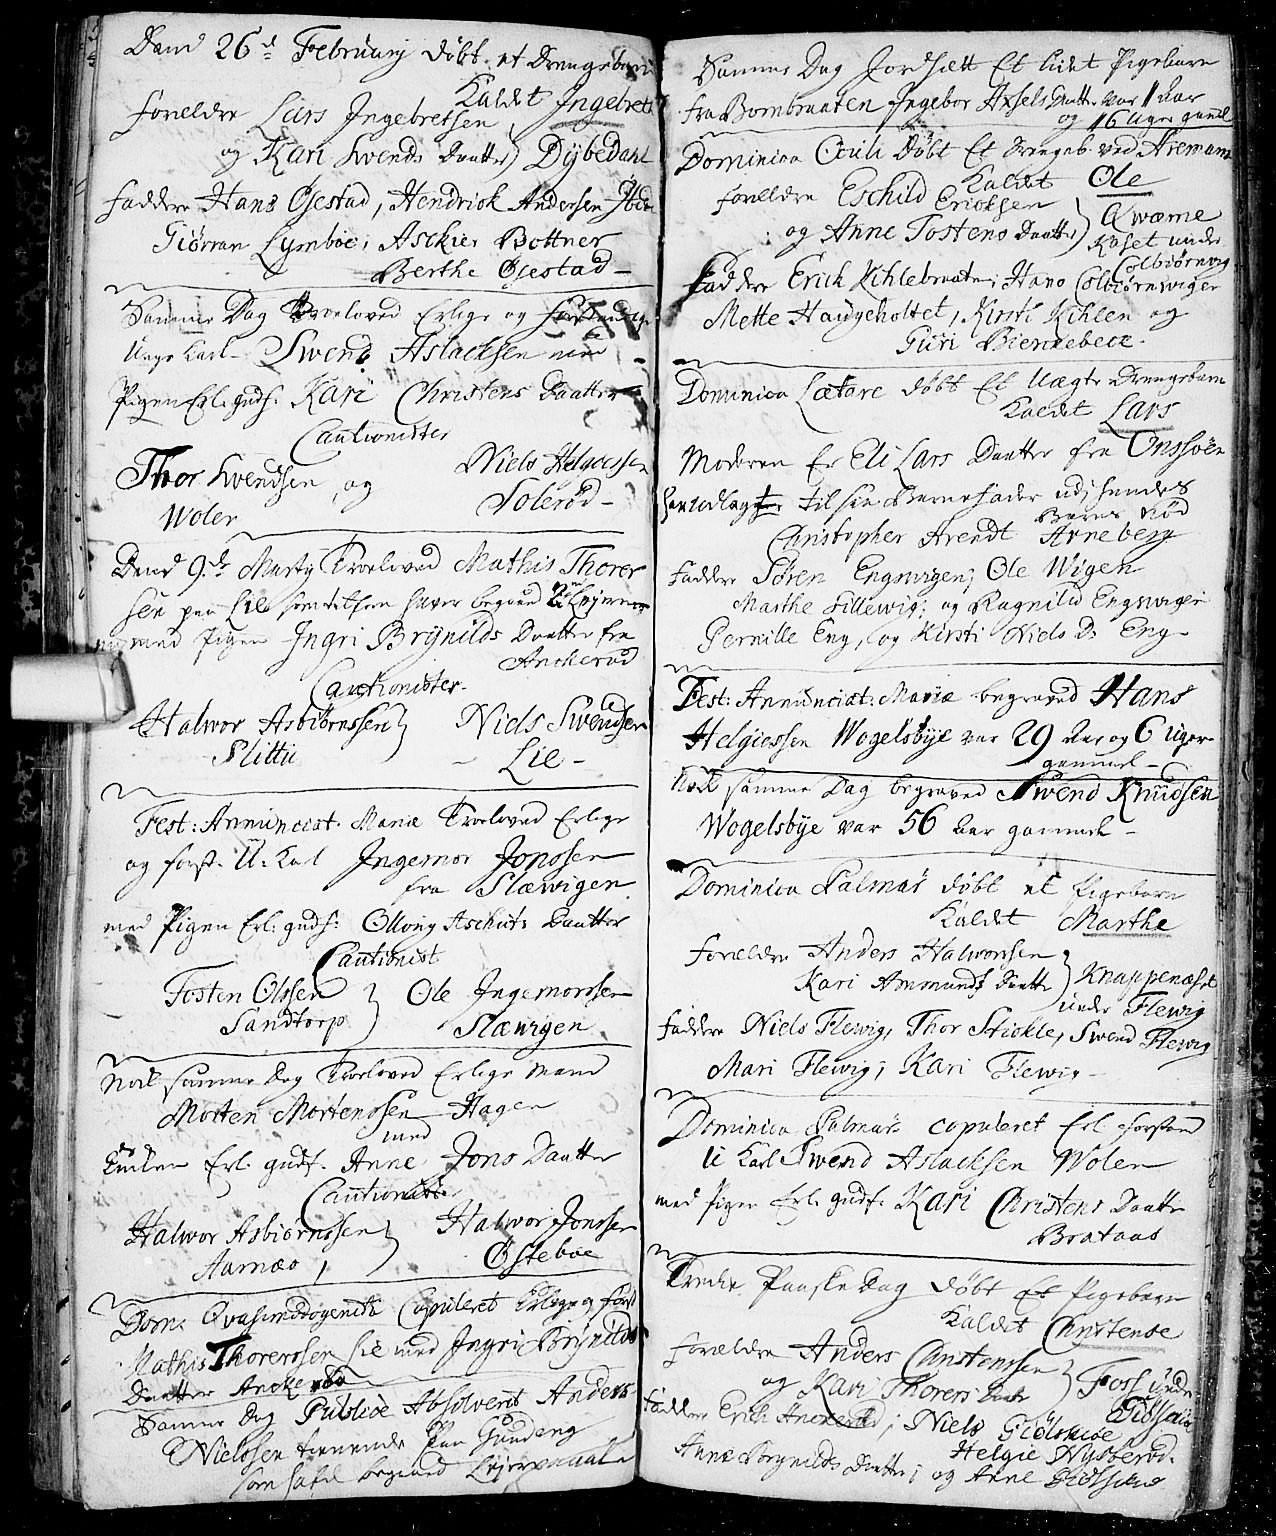 Dend 26d February døbt et Drengebarn
Kaldet Ingebret
Forældre Lars Ingebretsen
og Kari Swends Daatter) Dybedahl
Faddere Hans Øjestad, Hendrick Andersen
Giørran Lymboe, Asckier Bottner
Berthe Øjestad
Samme Dag Troeloved Erlige og
Unge Karl Swend Aslacksen med
Pigen Erl: gudf: Kari Christens Daatter
Cautionister
Thor Swendsen, og Niels Helgiessen
Woler Solerød
Dend 9de Marty Troeloved Mathis Thorer
sen paa Lie som tilforn haver begaaed
med Pigen Ingri Brynilds Daatter fra
Anckerud
Cautionister
Halwor Asbiørnssen } Niels Swendsen
Slittu Lie
Fest: Annunciat: Mariæ Troeloved Erlige
og forst. U. Karl Ingemor Jonssen
fra Slæwigen
med Pigen Erl: gudf: Ollong Aschuts Daatter
Cautionist
Tosten Olssen } Ole Ingemorssen
Sandtorp Slæwigen
Nock samme Dag Troeloved Erlige Mand
Morten Mortenssen Hagen
med
Enken Erl. gudf. Anne Jons Daatter
Cautionister
Halwor Asbiørnssen } Halwor Jonssen
Aarnæs Østeboe
Dom: Qvasimodogeniti Copuleret Erlige og forst
Mathis Thorerssen Lie med Ingri Brynilds
Daatter Anckerud
Samme Dag Publice Absolveret Anders
Nielssen tienende paa Gundeng
som hafde begaaed Leyermaal
Samme Dag Jordsatt Et lidet Pigebarn
fra Bombraaten Ingebor Axels Daatter var 1 Aar
og 16 Uger gaml
Dominica Oculi Døbt Et Drengeb. ved Aremark
Kaldet Ole
Forældre Eschild Ericksen
og Anne Tostens Daatter) Qwærne
Kaset under
Colbiørnwig
Faddere Erich Kihlebraaten, Hans Colbiørnwigen
Mette Haugeholtet, Kirsti Kihlen og
Guri Bienkebeck
Dominica Lætare døbt Et Uægte Drengebarn
Kaldet Lars
Moderen Er Eli Lars Daatter fra Onssøen
har udlagt til sin Barnefader udj hendes
Barns Nød
Christopher Arendt Arneberg
Faddere Søren Engswigen, Ole Wigen
Marthe Fillewig, og Ragnild Engswigen
Pernille Eng, og Kirsti Niels D. Eng
Fest: Annunciat: Mariæ begraved Hans
Helgiessen Wogelsbye var 29 Aar og 6 Uger
gammel
Nock samme Dag begraved Swend Knudsen
Wogelsbye var 56 Aar gammel
Dominica Palmar døbt et Pigebarn
Kaldet Marthe
Forældre Anders Halworssen
Kari Ammunds Daatter } Knappenæset
under Flewig
Faddere Niels Flewig, Thor Stickle, Swend Flewig
Mari Flewig, Kari Flewig
Dominica Palmar copuleret Erl. forstand
U Karl Swend Aslacksen Woler
med Pigen Erl. gudf. Kari Christens Daatter
Brataas
Tredie Paaske Dag døbt Et Pigebarn
Kaldet Christense
Forældre Anders Christenssen
og Kari Thorers Daatr } Foss under
Faddere Erich Anckerud, Niels Giølstad
Helgie Nysberød
Anne Brynilds Daatter, og Anne